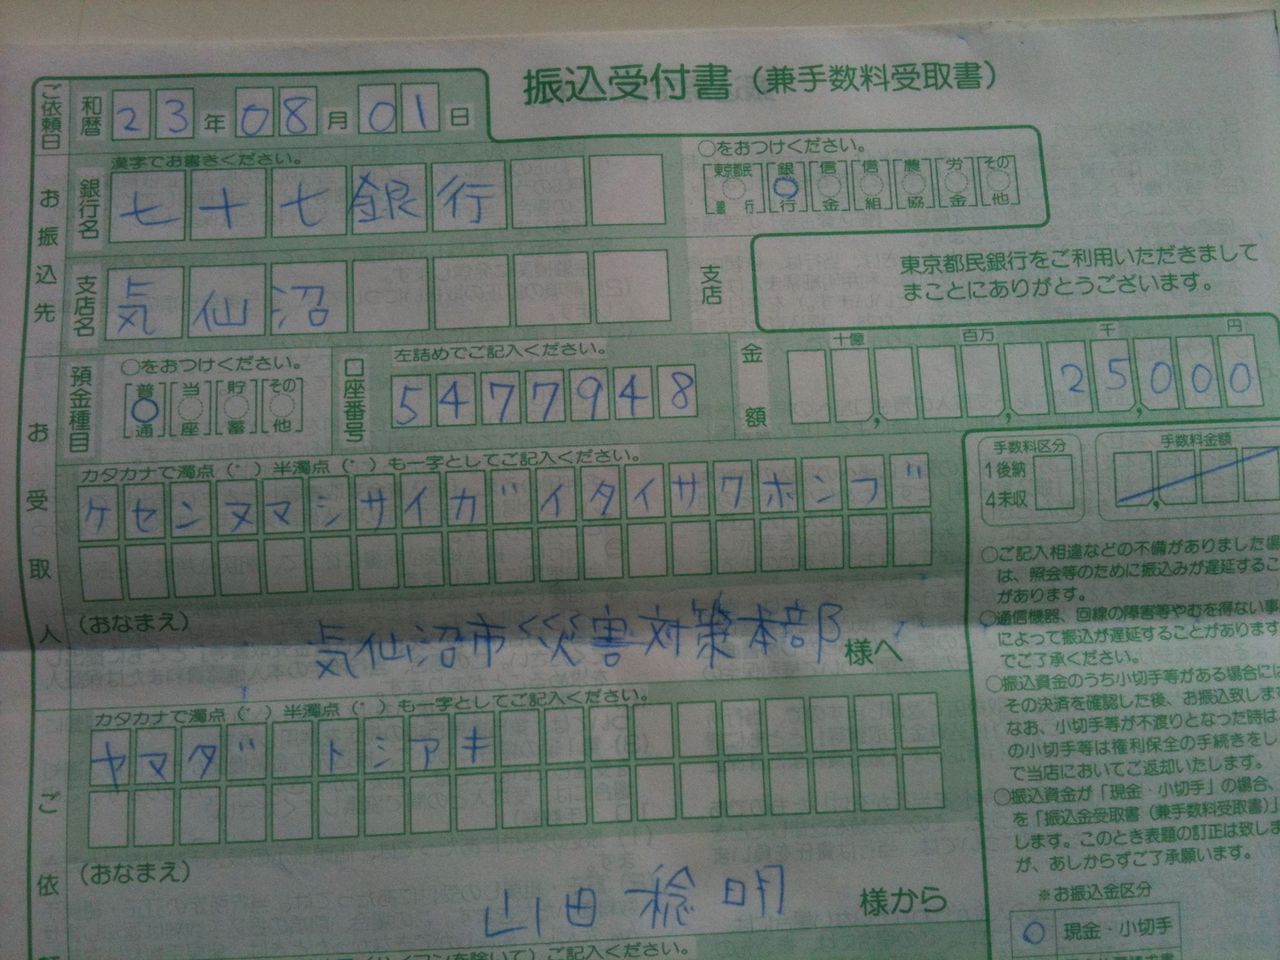 振込受付書（兼手数料受取書）
ご依頼日 和暦 23年08月01日
お振込先
漢字でお書きください。
銀行名 七十七銀行
○をおつけください。
東京都民銀行 銀行 信金 信組 農協 労金 その他
支店名 気仙沼 支店
東京都民銀行をご利用いただきまして
まことにありがとうございます。
預金種目 ○をおつけください。
普通 当座 貯蓄 その他
口座番号 左詰めでご記入ください。
5477948
金額 十億 百万 千 円
25,000
手数料区分
1後納
4未収
手数料金額
お受取人
カタカナで濁点（゛）半濁点（゜）も一字としてご記入ください。
ケセンヌマシサイガ゛イタイサクホンブ゛
（おなまえ）
気仙沼市災害対策本部 様へ
カタカナで濁点（゛）半濁点（゜）も一字としてご記入ください。
ヤマダ゛ トシアキ
ご依
（おなまえ）
山田稔明 様から
を除いて）ご記入ください。
○ご記入相違などの不備がありました場
は、照会等のために振込みが遅延するこ
があります。
○通信機器、回線の障害等やむを得ない事
によって振込が遅延することがあります
でご了承ください。
○振込資金のうち小切手等がある場合には
その決済を確認した後、お振込致しま
なお、小切手等が不渡りとなった時は
の小切手等は権利保全の手続きをし
で当店においてご返却いたします。
○振込資金が「現金・小切手」の場合、
を「振込金受取書（兼手数料受取書）」
します。このとき表題の訂正は致しま
が、あしからずご了承願います。
※お振込金区分
○ 現金・小切手